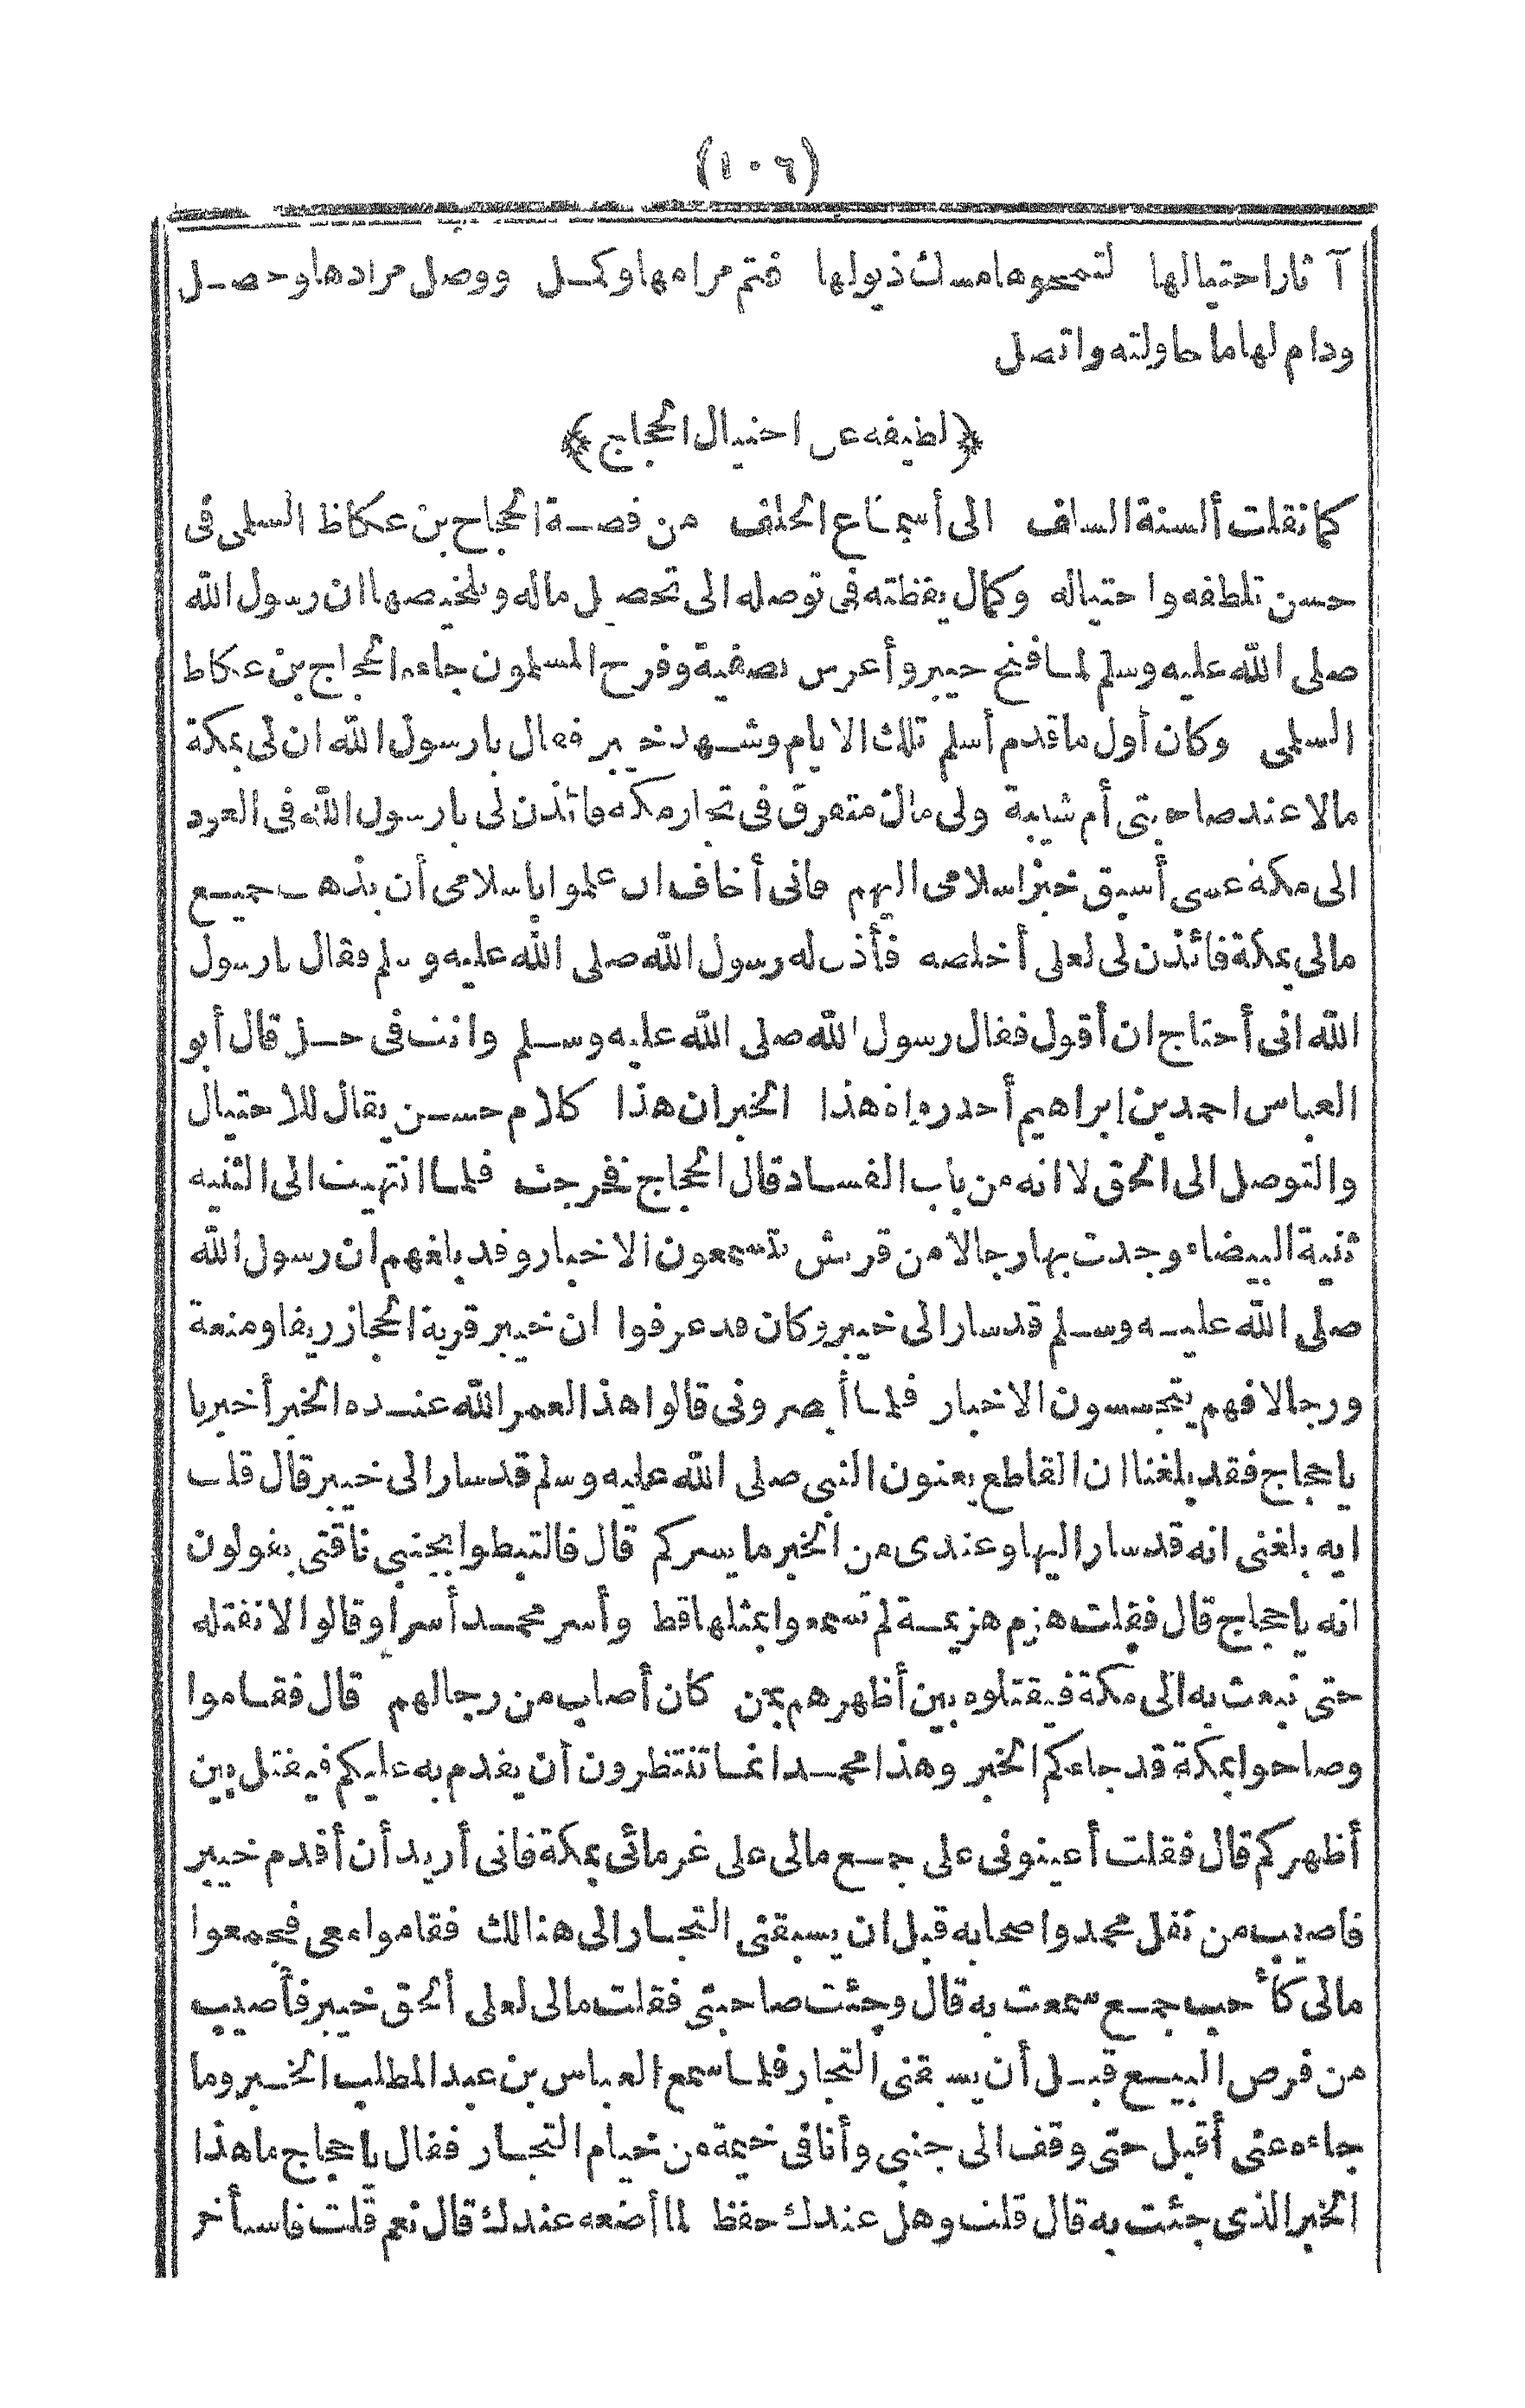 (١٠٦)
آثار احتيالها لتمحوها مسك ذيولها فتم مرامها وكمل ووصل مرادها وحصل
ودام لها ما حاولته واتصل
﴿لطيفه عن احتيال الحجاج﴾
كما نقلت ألسنة السلف الى أسماع الخلف من قصة الحجاج بن عكاظ السلمى فى
حسن تلطفه واحتياله وكمال يقظته فى توصله الى تحصيل ماله وتلخيصها ان رسول الله
صلى الله عليه وسلم لما فتح خيبر وأعرس بصفية وفرح المسلمون جاءه الحجاج بن عكاظ
السلمى وكان أول ما قدم أسلم تلك الايام وشهد خيبر فقال يا رسول الله ان لى بمكة
مالا عند صاحبتى أم شيبة ولى مال متفرق فى تجار مكه فائذن لى يا رسول الله فى العود
الى مكه عسى أسبق خبر اسلامى اليهم فانى أخاف ان علموا باسلامى أن يذهب جميع
مالى بمكة فائذن لى لعلى أخلصه فأذن له رسول الله صلى الله عليه وسلم فقال يا رسول
الله انى أحتاج ان أقول فقال رسول الله صلى الله عليه وسلم وانت فى حل قال أبو
العباس احمد بن ابراهيم أحد رواة هذا الخبر ان هذا كلام حسن يقال للاحتيال
والتوصل الى الحق لا انه من باب الفساد قال الحجاج فخرجت فلما انتهيت الى الثنيه
ثنية البيضاء وجدت بها رجالا من قريش يتسمعون الاخبار وقد بلغهم ان رسول الله
صلى الله عليه وسلم قد سار الى خيبر وكان قد عرفوا ان خيبر قرية الحجاز ريفا ومنعة
ورجالا فهم يتجسسون الاخبار فلما أبصرونى قالوا هذا لعمر الله عنده الخبر أخبرنا
يا حجاج فقد بلغنا ان القاطع يعنون النبى صلى الله عليه وسلم قد سار الى خيبر قال قلت
ايه بلغنى انه قد سار اليها وعندى من الخبر ما يسركم قال فالتبطوا بجنبى ناقتى يقولون
انه يا حجاج قال فقلت هزم هزيمة لم تسمعوا بمثلها قط وأسر محمد أسرا وقالوا لا نقتله
حتى نبعث به الى مكة فيقتلوه بين أظهرهم بمن كان أصاب من رجالهم قال فقاموا
وصاحوا بمكة قد جاءكم الخبر وهذا محمد انما تنتظرون أن يقدم به عليكم فيقتل بين
أظهركم قال فقلت أعينونى على جمع مالى على غرمائى بمكة فانى أريد أن أقدم خيبر
فاصيب من نفل محمد واصحابه قبل ان يسبقنى التجار الى هنالك فقاموا معى فجمعوا
مالى كأحب جمع سمعت به قال وجئت صاحبتى فقلت مالى لعلى ألحق خيبر فأصيب
من فرص البيع قبل أن يسبقنى التجار فلما سمع العباس بن عبد المطلب الخبر وما
جاءه عنى أقبل حتى وقف الى جنبى وأنا فى خيمة من خيام التجار فقال يا حجاج ما هذا
الخبر الذى جئت به قال قلت وهل عندك حفظ لما أضعه عندك قال نعم قلت فاستأخر